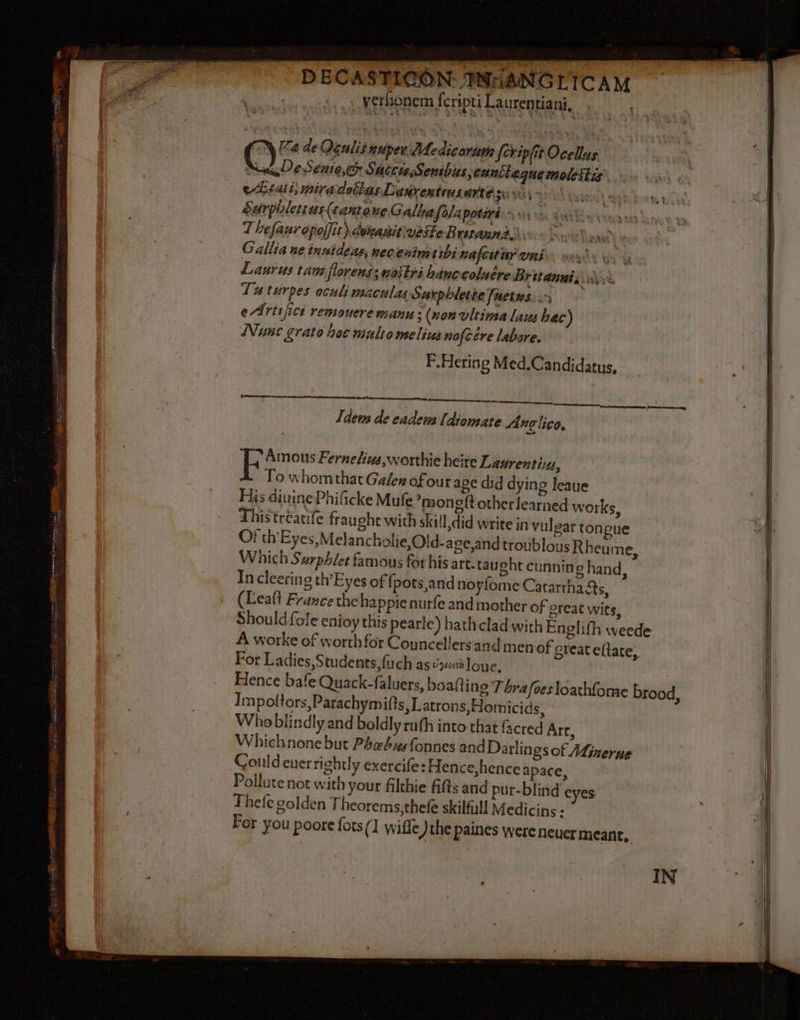 DECASTICON IN ANGLICAM
verſionem ſcripti Laurentiani.
QVæ de Oculis nuper Medicorum ſcripſit Ocellus,
De Senio, & Succis, Senibus, cunctaque moleſtis
Ætati, mira doctus Laurentius arte
Surphlettus (tantone Gallia ſola potiri
Theſauro poſsit) donavit veſte Britannâ.
Gallia ne invideas, nec enim tibi naſcitur uni
Laurus tam florens; noſtri hanc coluêre Britanni.
Tu turpes oculi maculas Surphlette fuetus
Artifici remouere manu; (non vltima laus hæc)
Nunc grato hoc multo melius noſcêre labore.
F. Hering Med. Candidatus,
Idem de eadem Idiomate Anglico.
FAmous Fernelius, worthie heire Laurentius,
To whom that Galen of our age did dying leaue
His diuine Phiſicke Muſe 'mongſt other learned works,
This treatiſe fraught with skill, did write in vulgar tongue
Of th'Eyes, Melancholie, Old-age, and troublous Rheume,
Which Surphlet famous for his art-taught cunning hand,
In cleering th'Eyes of ſpots, and noyſome Catarrhacts,
(Leaſt France the happie nurſe and mother of great wits,
Should ſole enioy this pearle) hath clad with Engliſh weede
A worke of worth for Councellers and men of great eſtate,
For Ladies, Students, ſuch as loue.
Hence baſe Quack-ſaluers, boaſting Thraſoes loathſome brood,
Impoſtors, Parachymiſts, Latrons, Homicids,
Who blindly and boldly ruſh into that ſacred Art,
Which none but Phœbus ſonnes and Darlings of Minerue
Could euer rightly exerciſe: Hence, hence apace,
Pollute not with your filthie fiſts and pur-blind eyes
Theſe golden Theorems, theſe skilfull Medicins:
For you poore ſots (I wiſſe) the paines were neuer meant.
IN